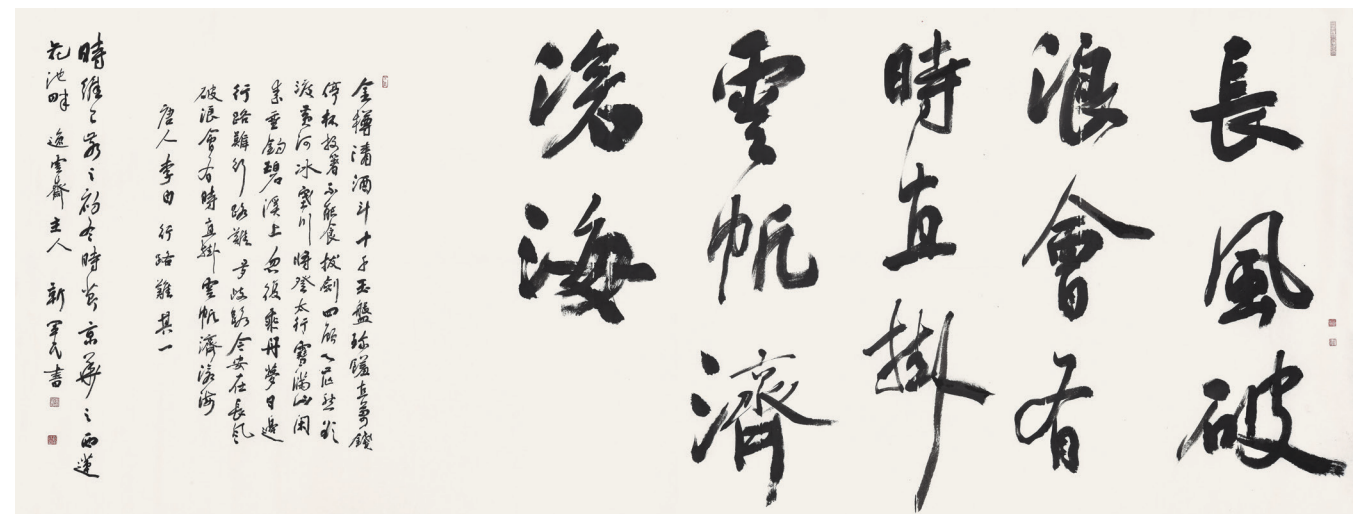 長風破
浪會有
時直掛
雲帆濟
滄海
金樽清酒斗十千玉盤珍饈直萬錢
停杯投箸不能食拔劍四顧心茫然欲
渡黃河冰塞川將登太行雪滿山閑
來垂釣碧溪上忽復乘舟夢日邊
行路難行路難多歧路今安在長風
破浪會有時直掛雲帆濟滄海
唐人李白行路難其一
時維己亥之初冬時京華之西蓮
花池畔逸雲齋主人新軍民書